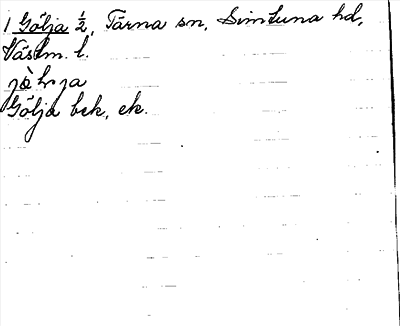 1 Gölja ½, Tärna sn, Simtuna hd,
Västm. l.
Gölja bek, ek.